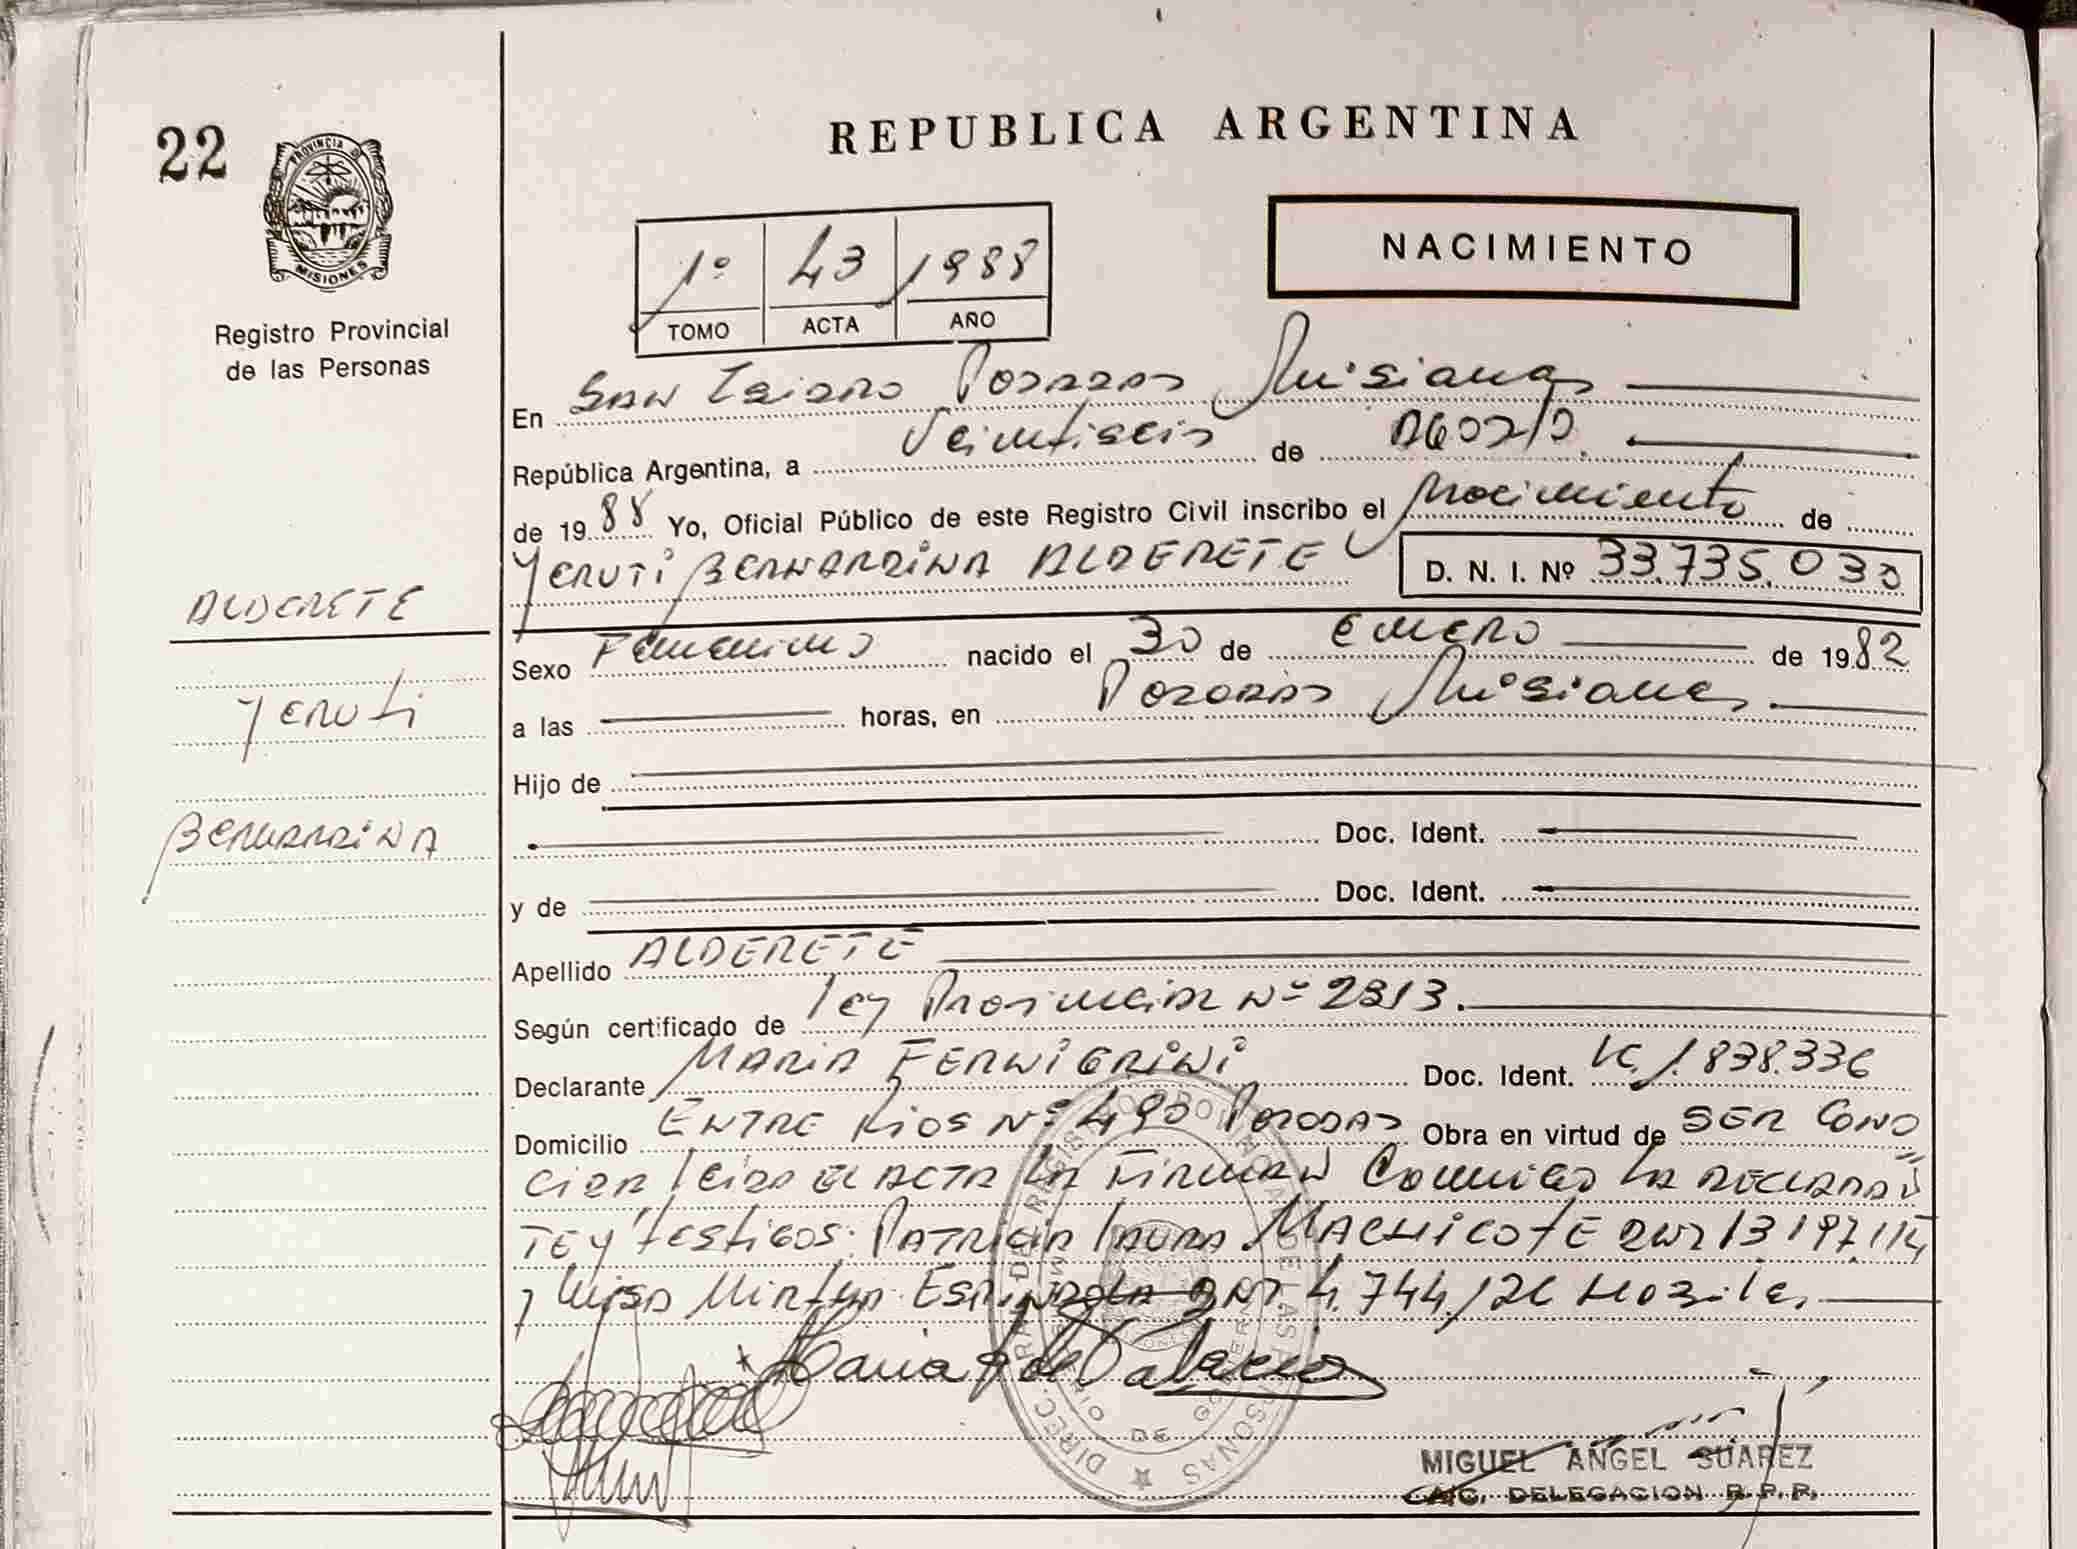 22
PROVINCIA D
MISIONES
Registro Provincial
de las Personas
REPUBLICA ARGENTINA
1º 43 1988
TOMO ACTA AÑO
NACIMIENTO
En San Isidro Posadas Misiones
República Argentina, a Veintiseis de AGOSTO
de 1988 Yo, Oficial Público de este Registro Civil inscribo el Nacimiento de
YERUTI BERNARDINA ALDERETE D. N. I. Nº 33.735.030
ALDERETE
Yeruti
BERNARDINA
Sexo Femenino nacido el 30 de ENERO de 1982
a las horas, en Posadas Misiones
Hijo de
Doc. Ident.
y de Doc. Ident.
Apellido ALDERETE
Según certificado de Ley Provincial Nº 2313.
Declarante MARIA FERNIGRINI Doc. Ident. 1.838.336
Domicilio ENTRE RIOS Nº 490 Posadas Obra en virtud de SER CONO
cida leida el ACTA LA FIRMAN Conmigo LA DECLARAN
TE y testigos: PATRICIA LAURA MACHICOTE DNI 13197.114
y Luisa Mirtha ESPINDOLA DNI 4.744.126
Maria F de Palacio
MIGUEL ANGEL SUAREZ
DELEGACION R.P.P.